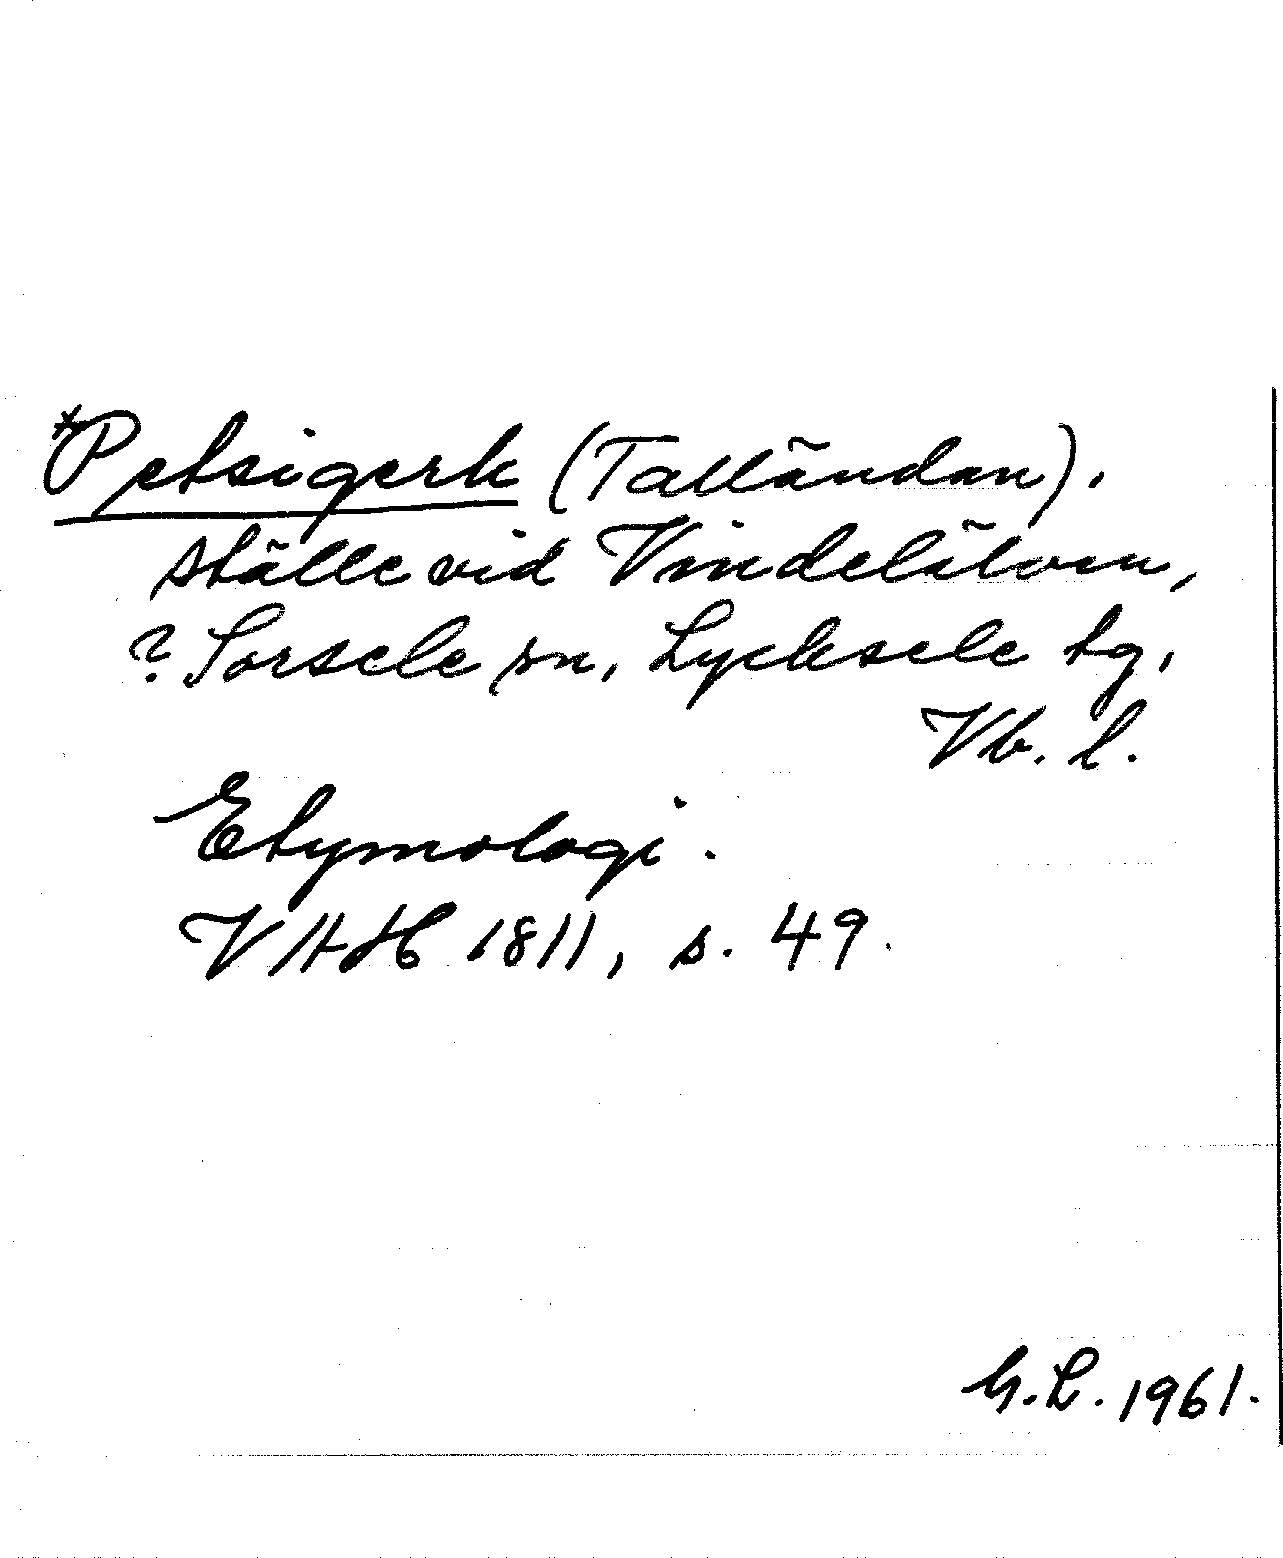 *Petsigerk (Talländan).
ställe vid Vindelälven,
? Sorsele sn, Lycksele tg,
Vb. l.
Etymologi.
VHAH 1811, s. 49.
G.L. 1961.